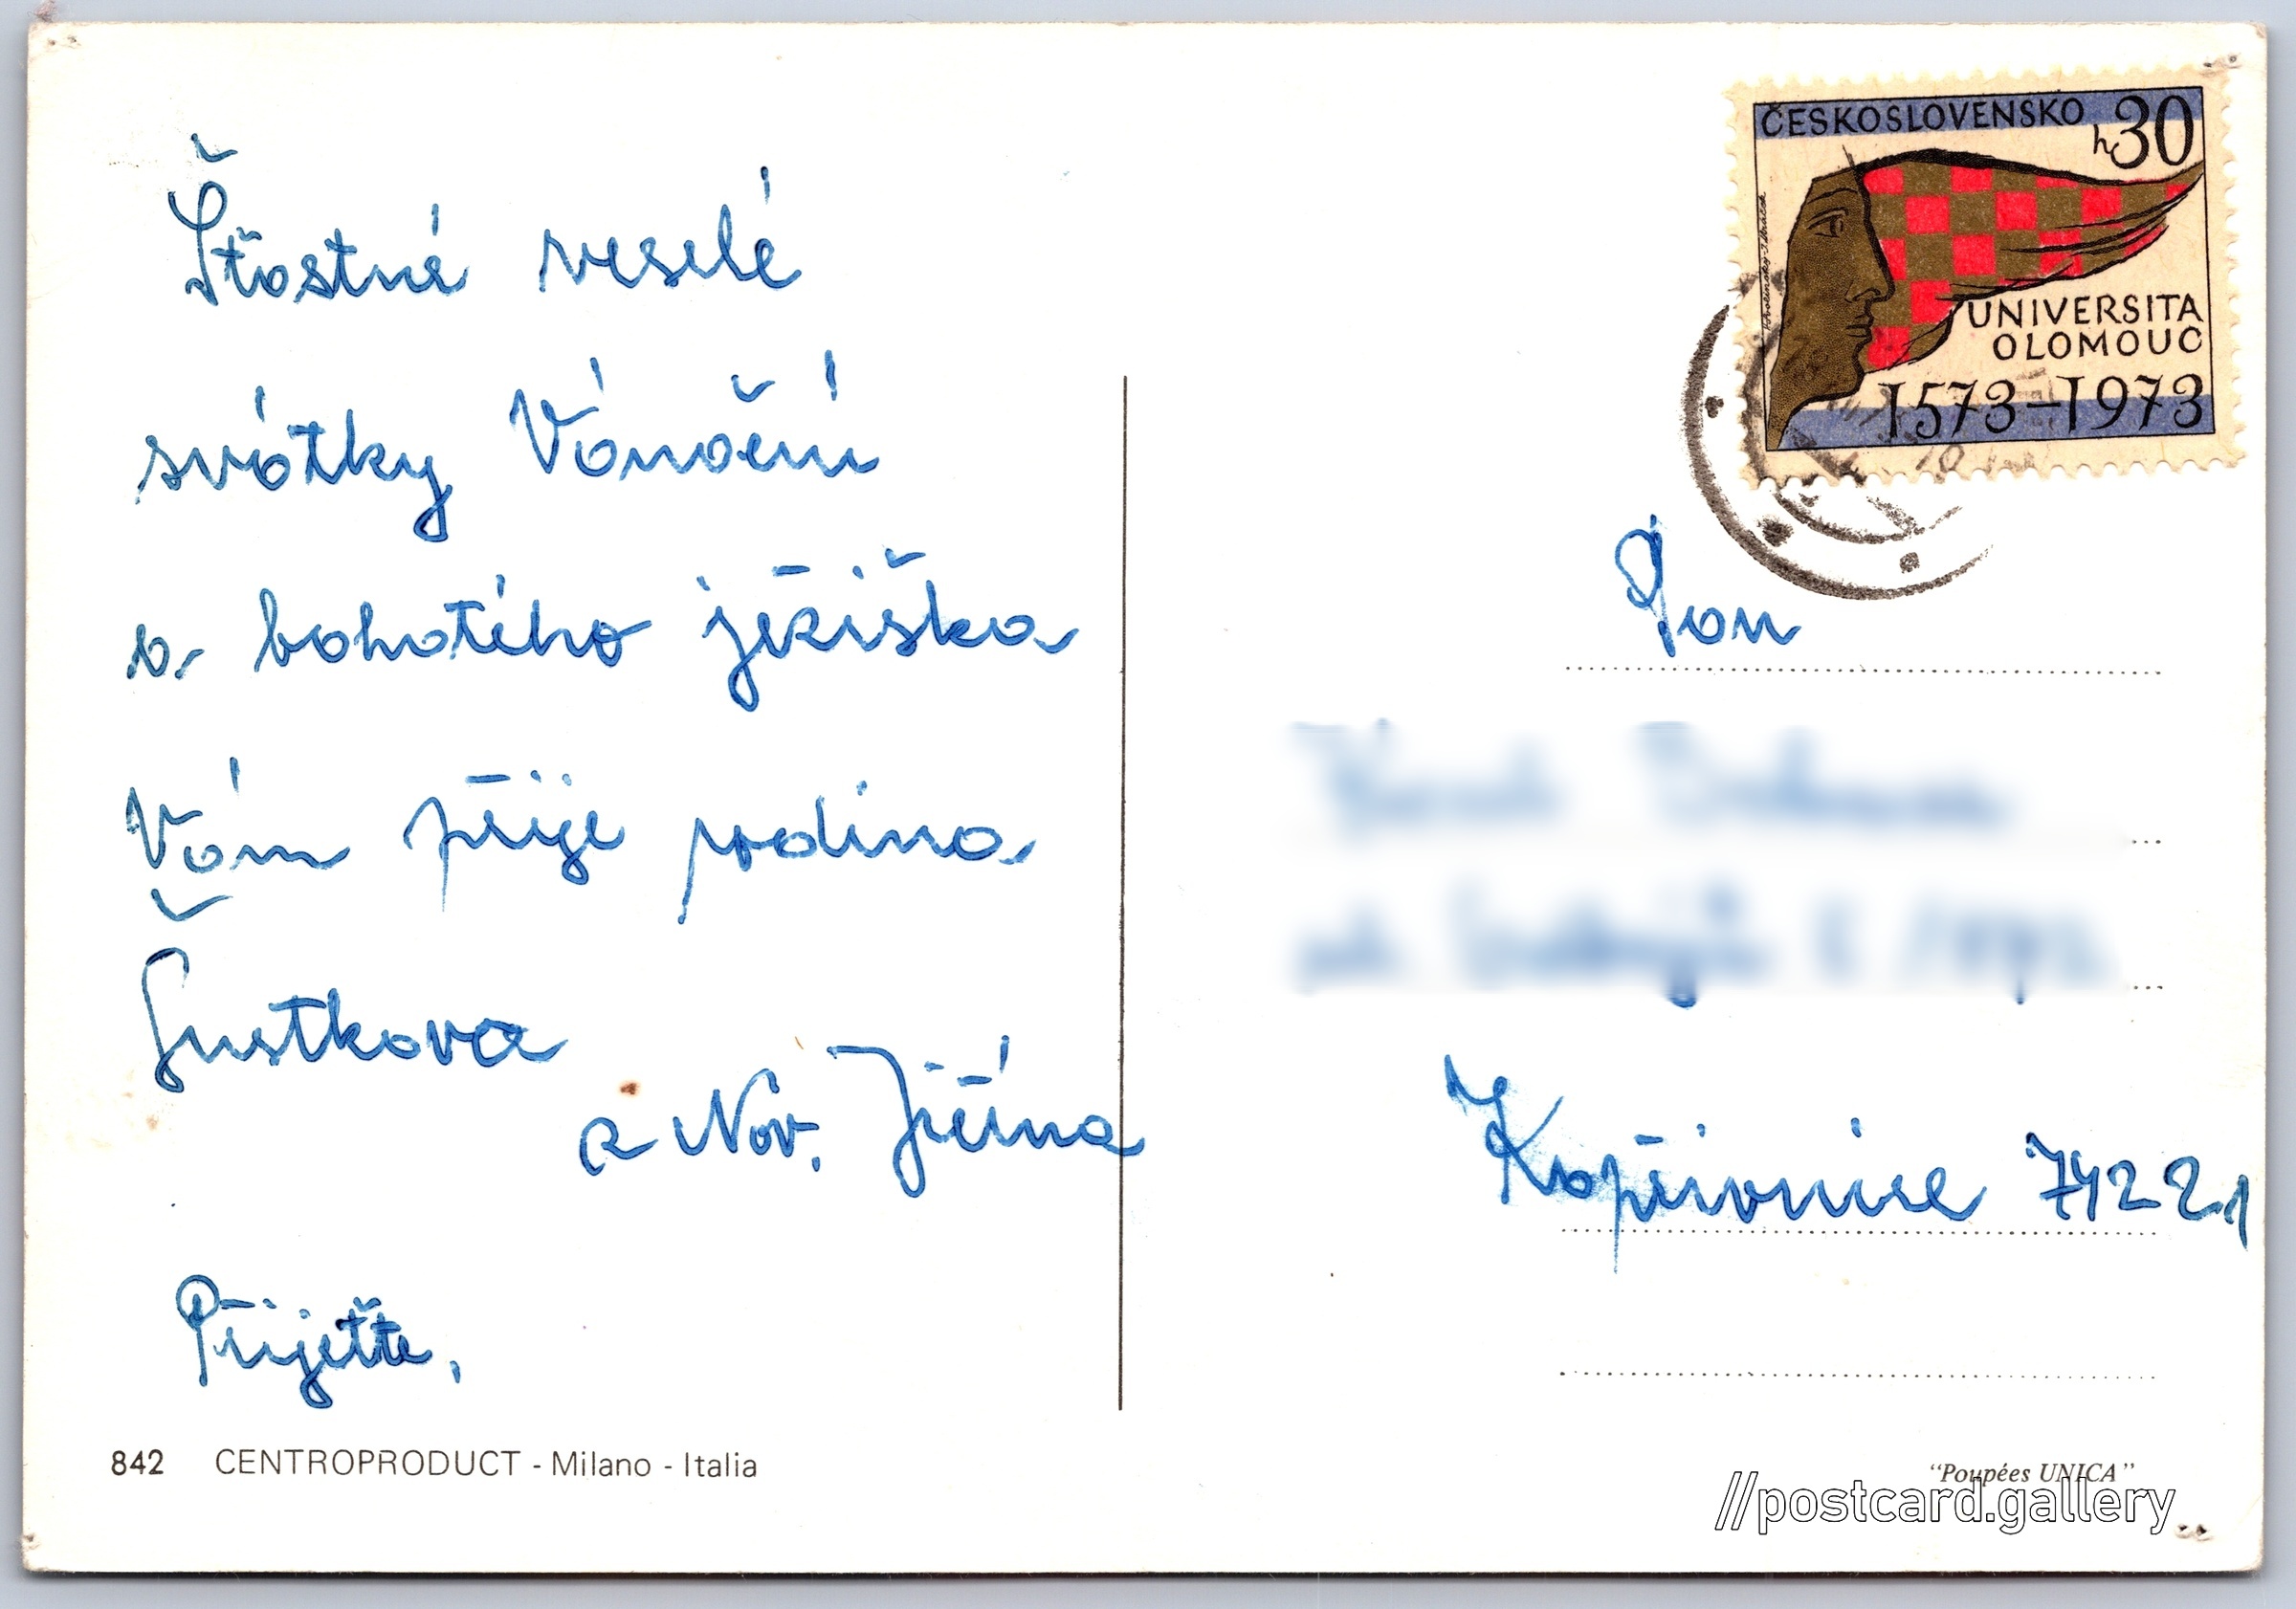 Šťastné veselé
svátky Vánoční
a bohatého ježíška
Vám přije rodina
Šustkova
a Nov. Jičína
Přijeďte,
842 CENTROPRODUCT - Milano - Italia
ČESKOSLOVENSKO
h30
UNIVERSITA
OLOMOUC
1573-1973
Pan
Kopřivnice 74221
"Poupées UNICA"
//postcard.gallery